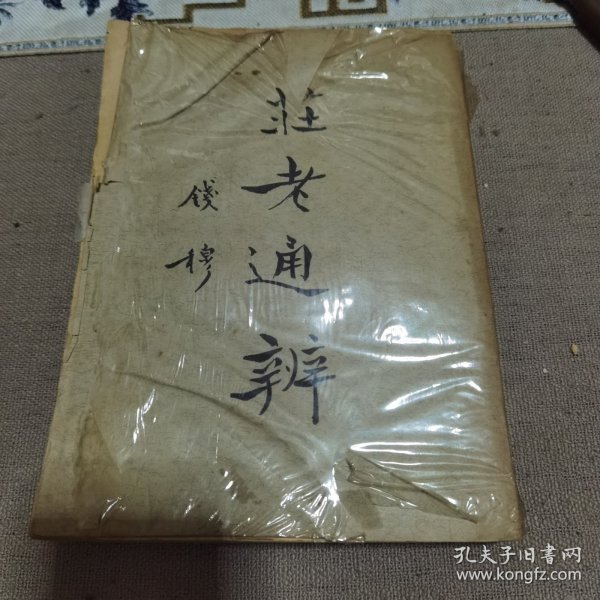 莊老通辨
錢穆
孔夫子旧書网
www.kongfz.com